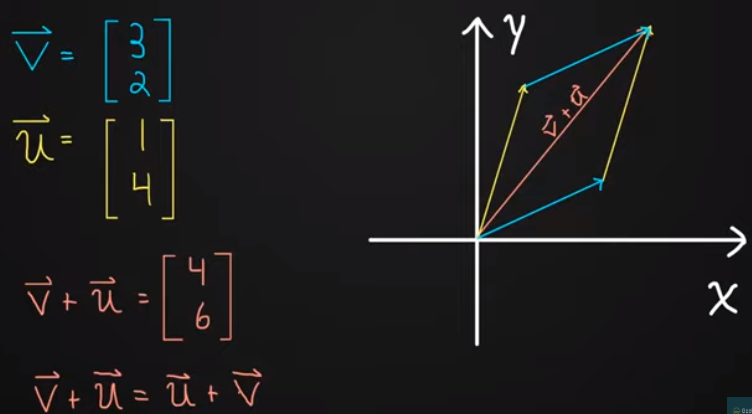 v⃗ = [3
2]
u⃗ = [1
4]
v⃗ + u⃗ = [4
6]
v⃗ + u⃗ = u⃗ + v⃗
y
v⃗ + u⃗
x